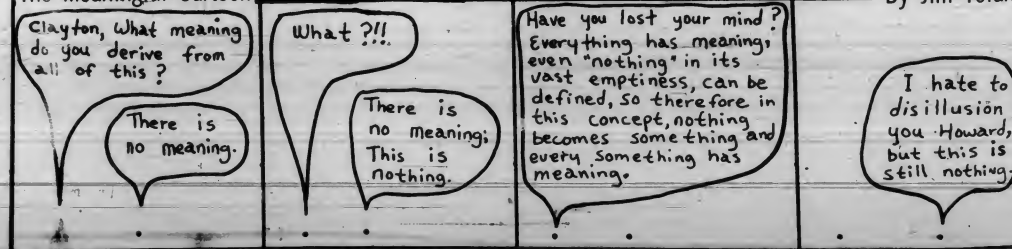 Clayton, What meaning
do you derive from
all of this?
There is
no meaning.
What ?!!
There is
no meaning;
This is
nothing.
Have you lost your mind?
Everything has meaning,
even "nothing" in its
vast emptiness, can be
defined, so therefore in
this concept, nothing
becomes something and
every something has
meaning.
I hate to
disillusion
you Howard,
but this is
still nothing.